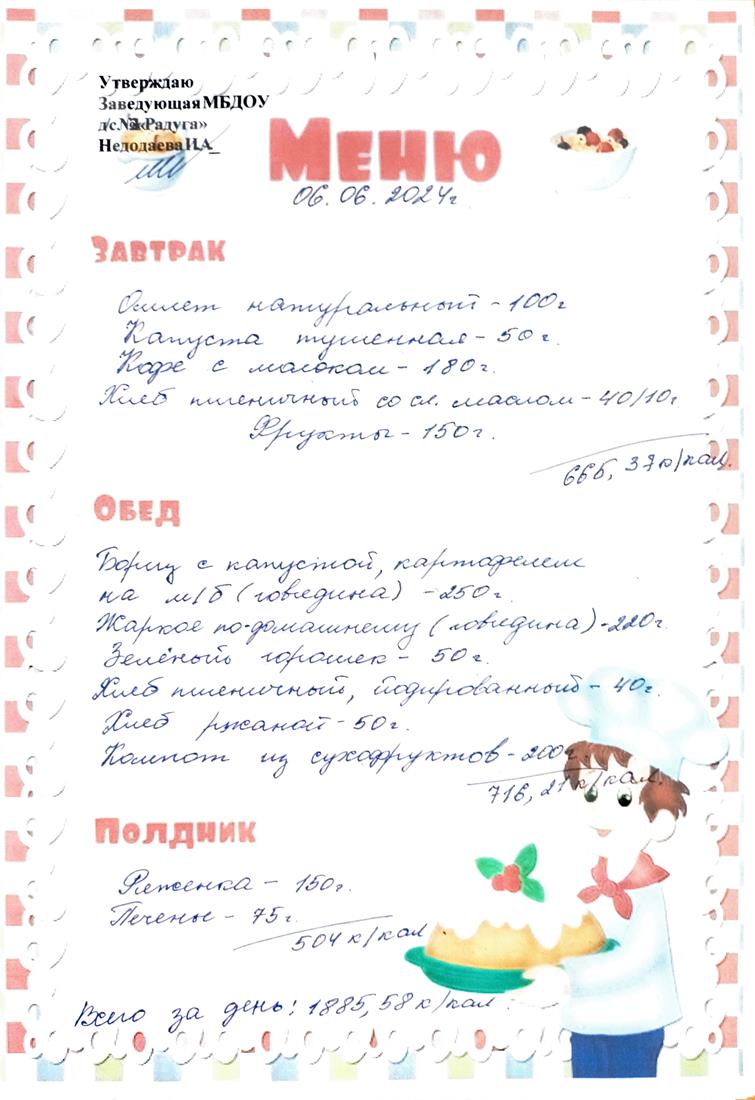 Утверждаю
Заведующая МБДОУ
д/с «Радуга»
Недодаева И.А_
Меню
06. 06. 2024г
Завтрак
Омлет натуральный - 100г
Капуста тушенная - 50г.
Кофе с молоком - 180г.
Хлеб пшеничный со сл. маслом - 40/10г
Фрукты - 150г.
665, 37 к/кал.
Обед
Борщ с капустой, картофелем
на м/б (говядина) - 250г.
Жаркое по-домашнему (говядина) - 220г.
Зелёный горошек - 50г.
Хлеб пшеничный, йодированный - 40г.
Хлеб ржаной - 50г.
Компот из сухофруктов - 200г.
716, 21 к/кал.
Полдник
Ряженка - 150г.
Печенье - 75г.
504 к/кал
Всего за день: 1885,58 к/кал